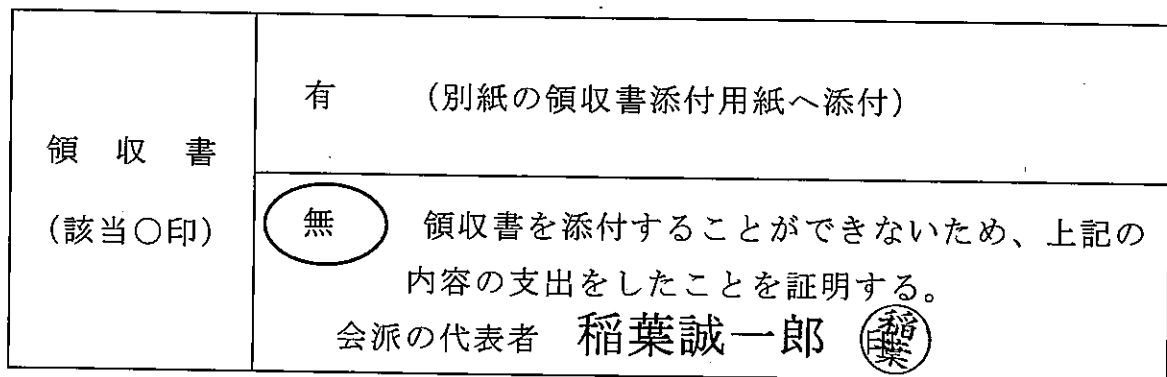 領　収　書
(該当○印)
有　　(別紙の領収書添付用紙へ添付)
無　領収書を添付することができないため、上記の
内容の支出をしたことを証明する。
会派の代表者　稲葉誠一郎　印
稲葉